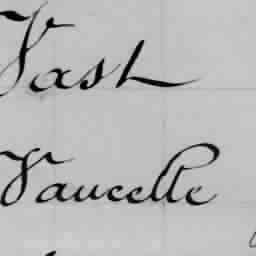 Vast
Vaucelle